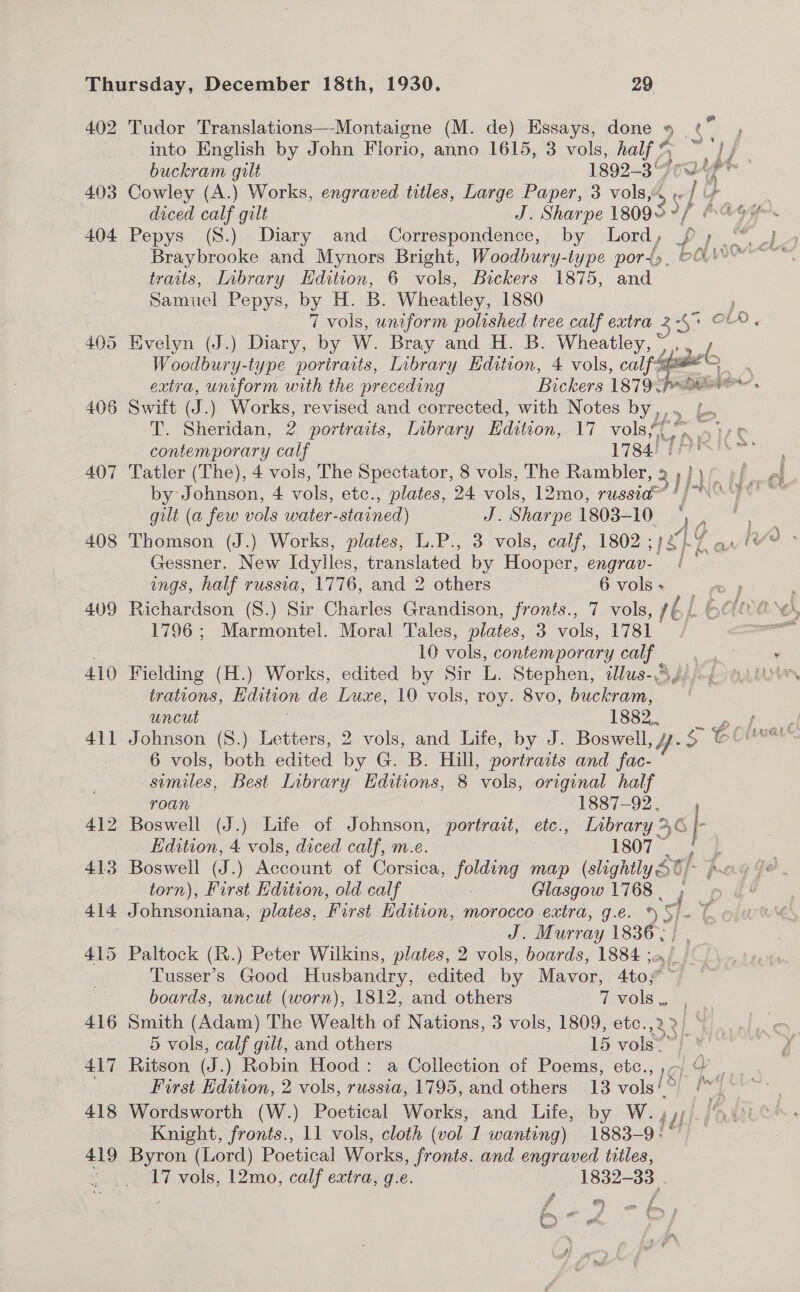 Thursday, December 18th, 1930. 29
402 Tudor Translations—Montaigne (M. de) Essays, done
into English by John Florio, anno 1615, 3 vols, half
buckram gilt 1892-3
403 Cowley (A.) Works, engraved titles, Large Paper, 3 vols,
diced calf gilt J. Sharpe 1809
404 Pepys (S.) Diary and Correspondence, by Lord
Braybrooke and Mynors Bright, Woodbury-type por-
traits, Library Edition, 6 vols, Bickers 1875, and
Samuel Pepys, by H. B. Wheatley, 1880
7 vols, uniform polished tree calf extra
405 Evelyn (J.) Diary, by W. Bray and H. B. Wheatley,
Woodbury-type portraits, Library Edition, 4 vols, calf
extra, uniform with the preceding Bickers 1879
406 Swift (J.) Works, revised and corrected, with Notes by
T. Sheridan, 2 portraits, Library Edition, 17 vols,
contemporary calf 1784
407 Tatler (The), 4 vols, The Spectator, 8 vols, The Rambler,
by Johnson, 4 vols, etc., plates, 24 vols, 12mo, russia
gilt (a few vols water-stained) J. Sharpe 1803-10
408 Thomson (J.) Works, plates, L.P., 3 vols, calf, 1802;
Gessner. New Idylles, translated by Hooper, engrav-
ings, half russia, 1776, and 2 others 6 vols
409 Richardson (S.) Sir Charles Grandison, fronts., 7 vols,
1796; Marmontel. Moral Tales, plates, 3 vols, 1781
10 vols, contemporary calf
410 Fielding (H.) Works, edited by Sir L. Stephen, illus-
trations, Edition de Luxe, 10 vols, roy. 8vo, buckram,
uncut 1882
411 Johnson (S.) Letters, 2 vols, and Life, by J. Boswell,
6 vols, both edited by G. B. Hill, portraits and fac-
similes, Best Library Editions, 8 vols, original half
roan 1887-92
412 Boswell (J.) Life of Johnson, portrait, etc., Library
Edition, 4 vols, diced calf, m.e. 1807
413 Boswell (J.) Account of Corsica, folding map (slightly
torn), First Edition, old calf Glasgow 1768
414 Johnsoniana, plates, First Edition, morocco extra, g.e.
J. Murray 1836
415 Paltock (R.) Peter Wilkins, plates, 2 vols, boards, 1884;
Tusser's Good Husbandry, edited by Mavor, 4to,
boards, uncut (worn), 1812, and others 7 vols
416 Smith (Adam) The Wealth of Nations, 3 vols, 1809, etc.,
5 vols, calf gilt, and others 15 vols
417 Ritson (J.) Robin Hood: a Collection of Poems, etc.,
First Edition, 2 vols, russia, 1795, and others 13 vols
418 Wordsworth (W.) Poetical Works, and Life, by W.
Knight, fronts., 11 vols, cloth (vol 1 wanting) 1883-9
419 Byron (Lord) Poetical Works, fronts. and engraved titles,
17 vols, 12mo, calf extra, g.e. 1832-33